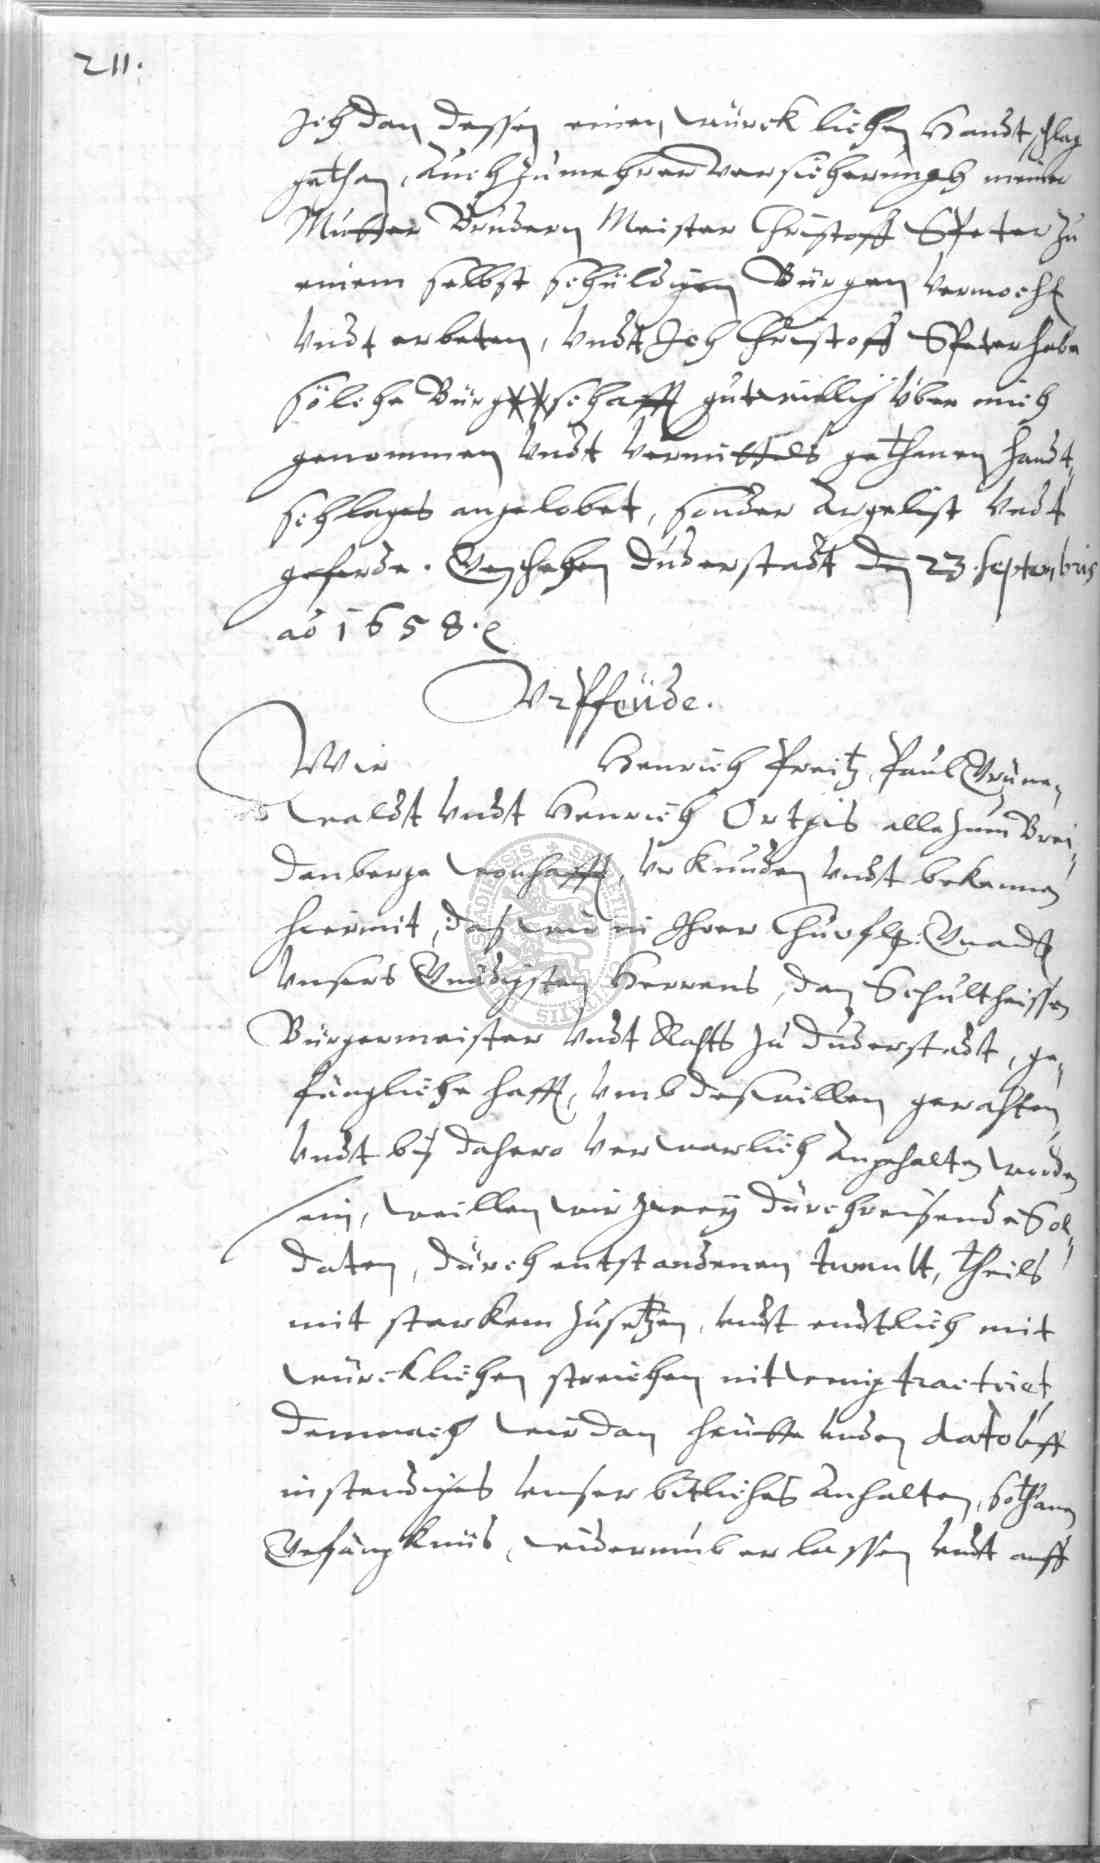 211.
Ich dan dessen einen würcklichen Handtschlag
gethan, Auch zu mehrer versicherungh meiner
Mutter Brudern Meister Christoff Speter zu
einem selbst schüldigen Bürgen vermocht
vndt erbeten, vndt Ich Christoff Speter habe
sölche Bürgschafft gutwillig über mich
genommen vndt vermittels gethanen handt-
schlages angelobet, sonder Argelist vndt
geferde. Geschehen Duderstadt den 23. Septembris
ao 1658.
Vrpfeüde.
Wir Henrich Freitz, Paul Grüne-
waldt vndt Henrich Ortgis alle zum Brei-
denberge wonhafft, Vrkunden vndt bekennen
hiermit, daß wir in Ihrer Churfl. Gnadt
vnsers Gnädigsten Herrens, den Schultheissen
Bürgermeister vndt Rahts zu Duderstadt, ge-
fängliche hafft, vmb deßwillen gerahten,
vndt biß dahero verwarlich Angehalten worden
sein, weillen wir zwey durchreisende Sol-
daten, durch entstandenen tumult, theils
mit starkem zusetzen, vndt endtlich mit
würcklichen streichen nit wenig tractiret,
demnach wir dan heütte vnden dato vff
instendiges vnser bitliches Anhalten, sothaner
Gefängknüs, widerumb erlassen vndt auff